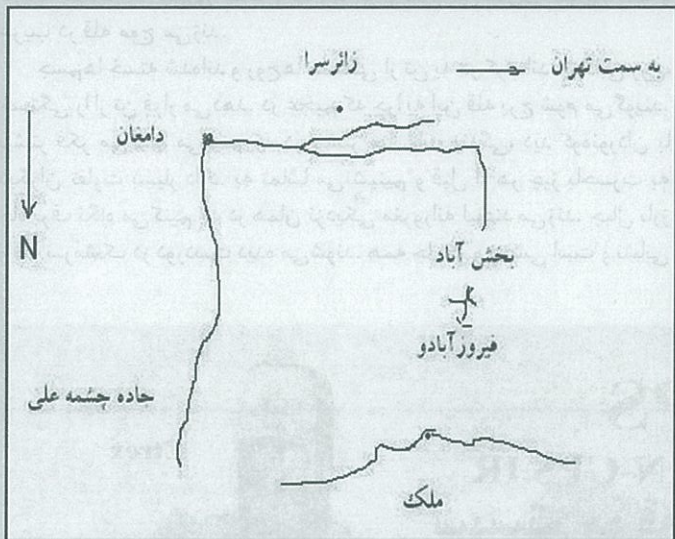 به سمت تهران
زائرسرا
دامغان
N
بخش آباد
فیروزآبادو
جاده چشمه علی
ملک